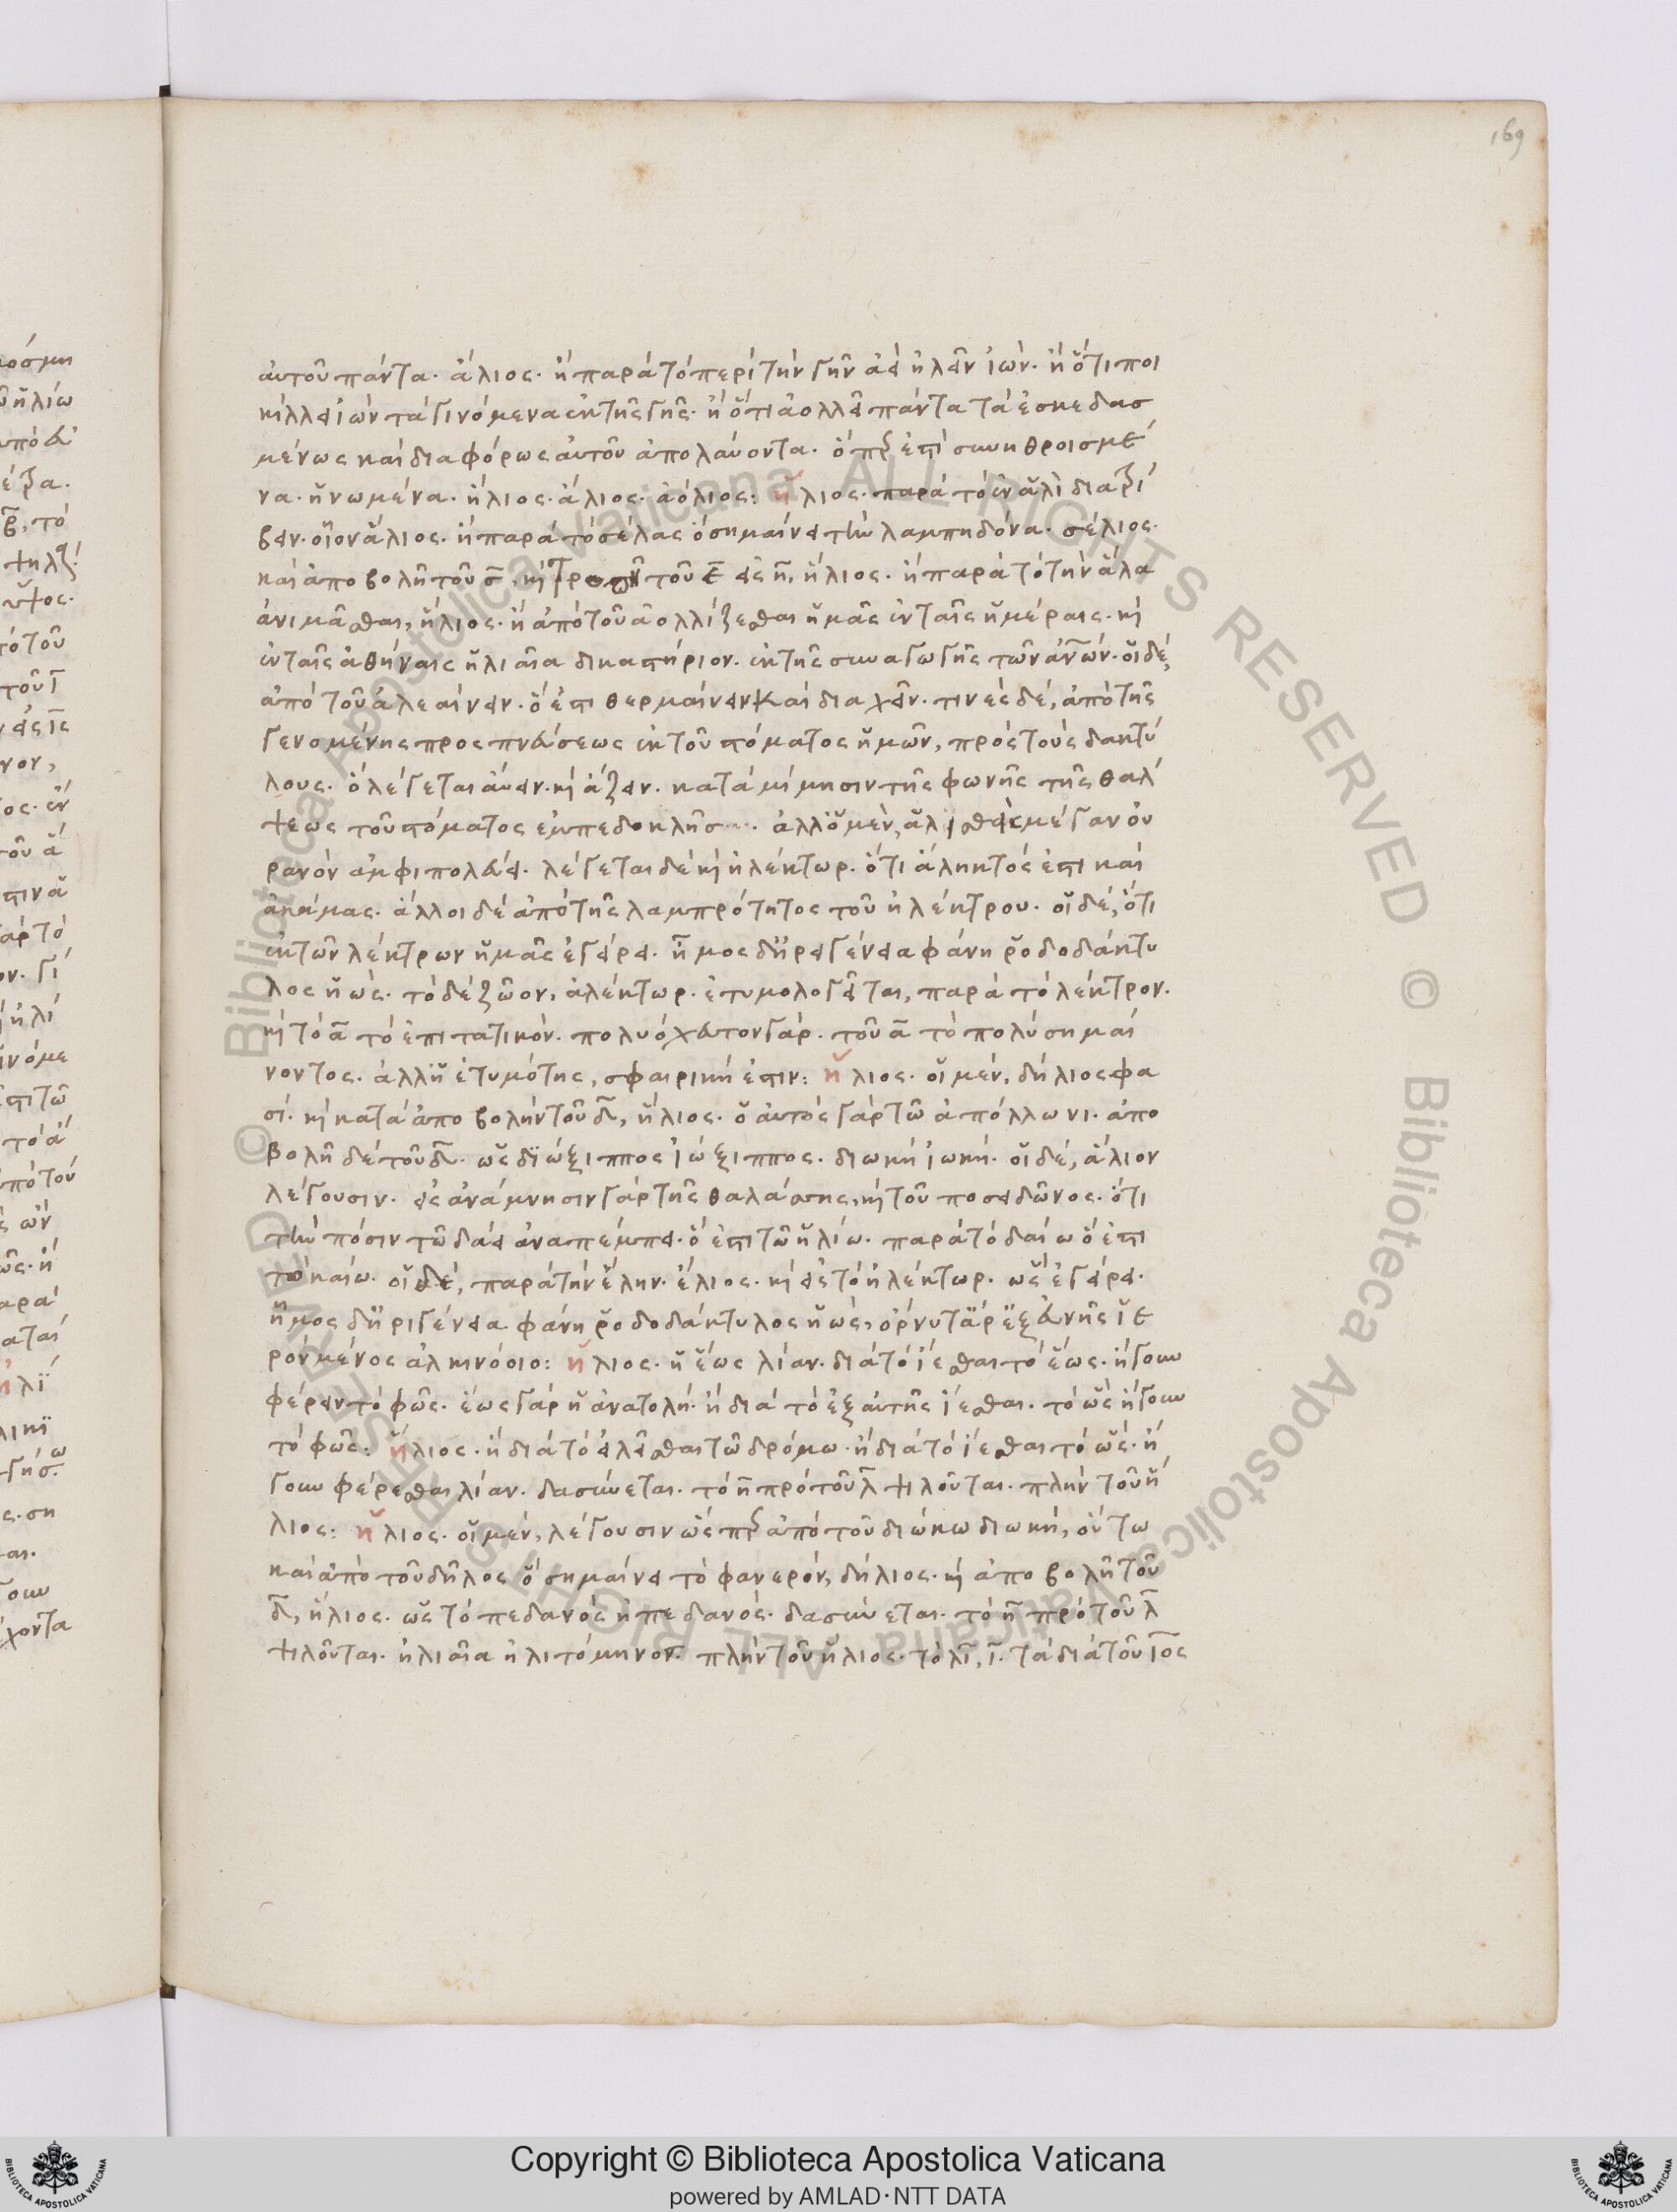 169
αὐτοῦ πάντα. ἅλιος. ἢ παρὰ τὸ περὶ τὴν γῆν ἀεὶ εἱλεῖν ἰών. ἢ ὅτι ποι
κίλλει ἰὼν τὰ γινόμενα ἐκ τῆς γῆς. ἢ ὅτι ἀολλεῖ πάντα τὰ ἐσκεδασ
μένως καὶ διαφόρως αὐτοῦ ἀπολαύοντα. ὅπερ ἐστὶ συνηθροισμέ
να. ἡνωμένα. ἥλιος. ἅλιος. ἀόλιος: ἥλιος. παρὰ τὸ ἐν ἁλὶ διατρί
βειν. οἷον ἅλιος. ἢ παρὰ τὸ σέλας ὃ σημαίνει τὴν λαμπηδόνα. σέλιος.
καὶ ἀποβολῇ τοῦ σ, καὶ τροπῇ τοῦ ε εἰς η, ἥλιος. ἢ παρὰ τὸ τὴν ἅλα
ἀνιμᾶσθαι, ἥλιος. ἢ ἀπὸ τοῦ ἀολλίζεσθαι ἡμᾶς ἐν ταῖς ἡμέραις. καὶ
ἐν ταῖς ἀθήναις ἡλιαῖα δικαστήριον. ἐκ τῆς συναγωγῆς τῶν ἀνῶν. οἱ δὲ,
ἀπὸ τοῦ ἀλεαίνειν. ὅ ἐστι θερμαίνειν καὶ διαχεῖν. τινὲς δὲ, ἀπὸ τῆς
γενομένης προσπνεύσεως ἐκ τοῦ στόματος ἡμῶν, πρὸς τοὺς δακτύ
λους. ὃ λέγεται αὔειν. καὶ ἄζειν. κατὰ μίμησιν τῆς φωνῆς τῆς θαλ
ψεως τοῦ στόματος ἐμπεδοκλῆς .... ἀλλ' ὁ μὲν, ἁλισθεὶς μέγαν οὐ
ρανὸν ἀμφιπολεύει. λέγεται δὲ καὶ ἠλέκτωρ. ὅτι ἄληκτός ἐστι καὶ
ἀκάμας. ἄλλοι δὲ ἀπὸ τῆς λαμπρότητος τοῦ ἠλέκτρου. οἱ δὲ, ὅτι
ἐκ τῶν λέκτρων ἡμᾶς ἐγείρει. ἦμος δ' ἠριγένεια φάνη ῥοδοδάκτυ
λος ἠώς. τὸ δὲ ζῶον, ἀλέκτωρ. ἐτυμολογεῖται, παρὰ τὸ λέκτρον.
καὶ τὸ α τὸ ἐπιτατικόν. πολυόχευτον γάρ. τοῦ α τὸ πολὺ σημαί
νοντος. ἀλλ' ἡ ἐτυμότης, σφαιρική ἐστιν: ἥλιος. οἱ μὲν, δήλιος φα
σί. καὶ κατὰ ἀποβολὴν τοῦ δ, ἥλιος. ὁ αὐτὸς γὰρ τῶ ἀπόλλωνι. ἀπο
βολῆ δὲ τοῦ δ. ὡς διώξιππος ἰώξιππος. διωκή ἰωκή. οἱ δὲ, ἅλιον
λέγουσιν. εἰς ἀνάμνησιν γὰρ τῆς θαλάσσης, καὶ τοῦ ποσειδῶνος. ὅτι
τὴν πόσιν τῶ δαεῖ ἀναπέμπει. ὅ ἐστι τῶ ἡλίω. παρὰ τὸ δαίω ὅ ἐστι
τὸ καίω. οἱ δὲ, παρὰ τὴν ἕλην. ἕλιος. καὶ εἰς τὸ ἠλέκτωρ. ὡς ἐγείρει.
ἦμος δ' ἠριγένεια φάνη ῥοδοδάκτυλος ἠώς, ὄρνυτ' ἄρ' ἐξ εὐνῆς ἱε
ρὸν μένος ἀλκινόοιο: ἥλιος. ἡ ἕως λίαν. διὰ τὸ ἵεσθαι τὸ ἕως. ἤγουν
φέρειν τὸ φῶς. ἕως γὰρ ἡ ἀνατολή. ἢ διὰ τὸ ἐξ αὐτῆς ἵεσθαι. τὸ ὡς ἤγουν
τὸ φῶς: ἥλιος. ἢ διὰ τὸ εἰλεῖσθαι τῶ δρόμω. ἢ διὰ τὸ ἵεσθαι τὸ ὡς. ἤ
γουν φέρεσθαι λίαν. δασύνεται. τὸ η πρὸ τοῦ λ ψιλοῦται. πλὴν τοῦ ἥ
λιος: ἥλιος. οἱ μὲν, λέγουσιν ὥσπερ ἀπὸ τοῦ διώκω διωκή, οὕτω
καὶ ἀπὸ τοῦ δῆλος ὃ σημαίνει τὸ φανερὸν, δήλιος. καὶ ἀποβολῆ τοῦ
δ, ἥλιος. ὡς τὸ πεδανὸς ἠπεδανός. δασύνεται. τὸ η πρὸ τοῦ λ
ψιλοῦται. ἠλιαῖα ἠλιτόμηνον. πλὴν τοῦ ἥλιος. τὸ λι, ι. τὰ διὰ τοῦ ιος
Copyright © Biblioteca Apostolica Vaticana
powered by AMLAD・NTT DATA